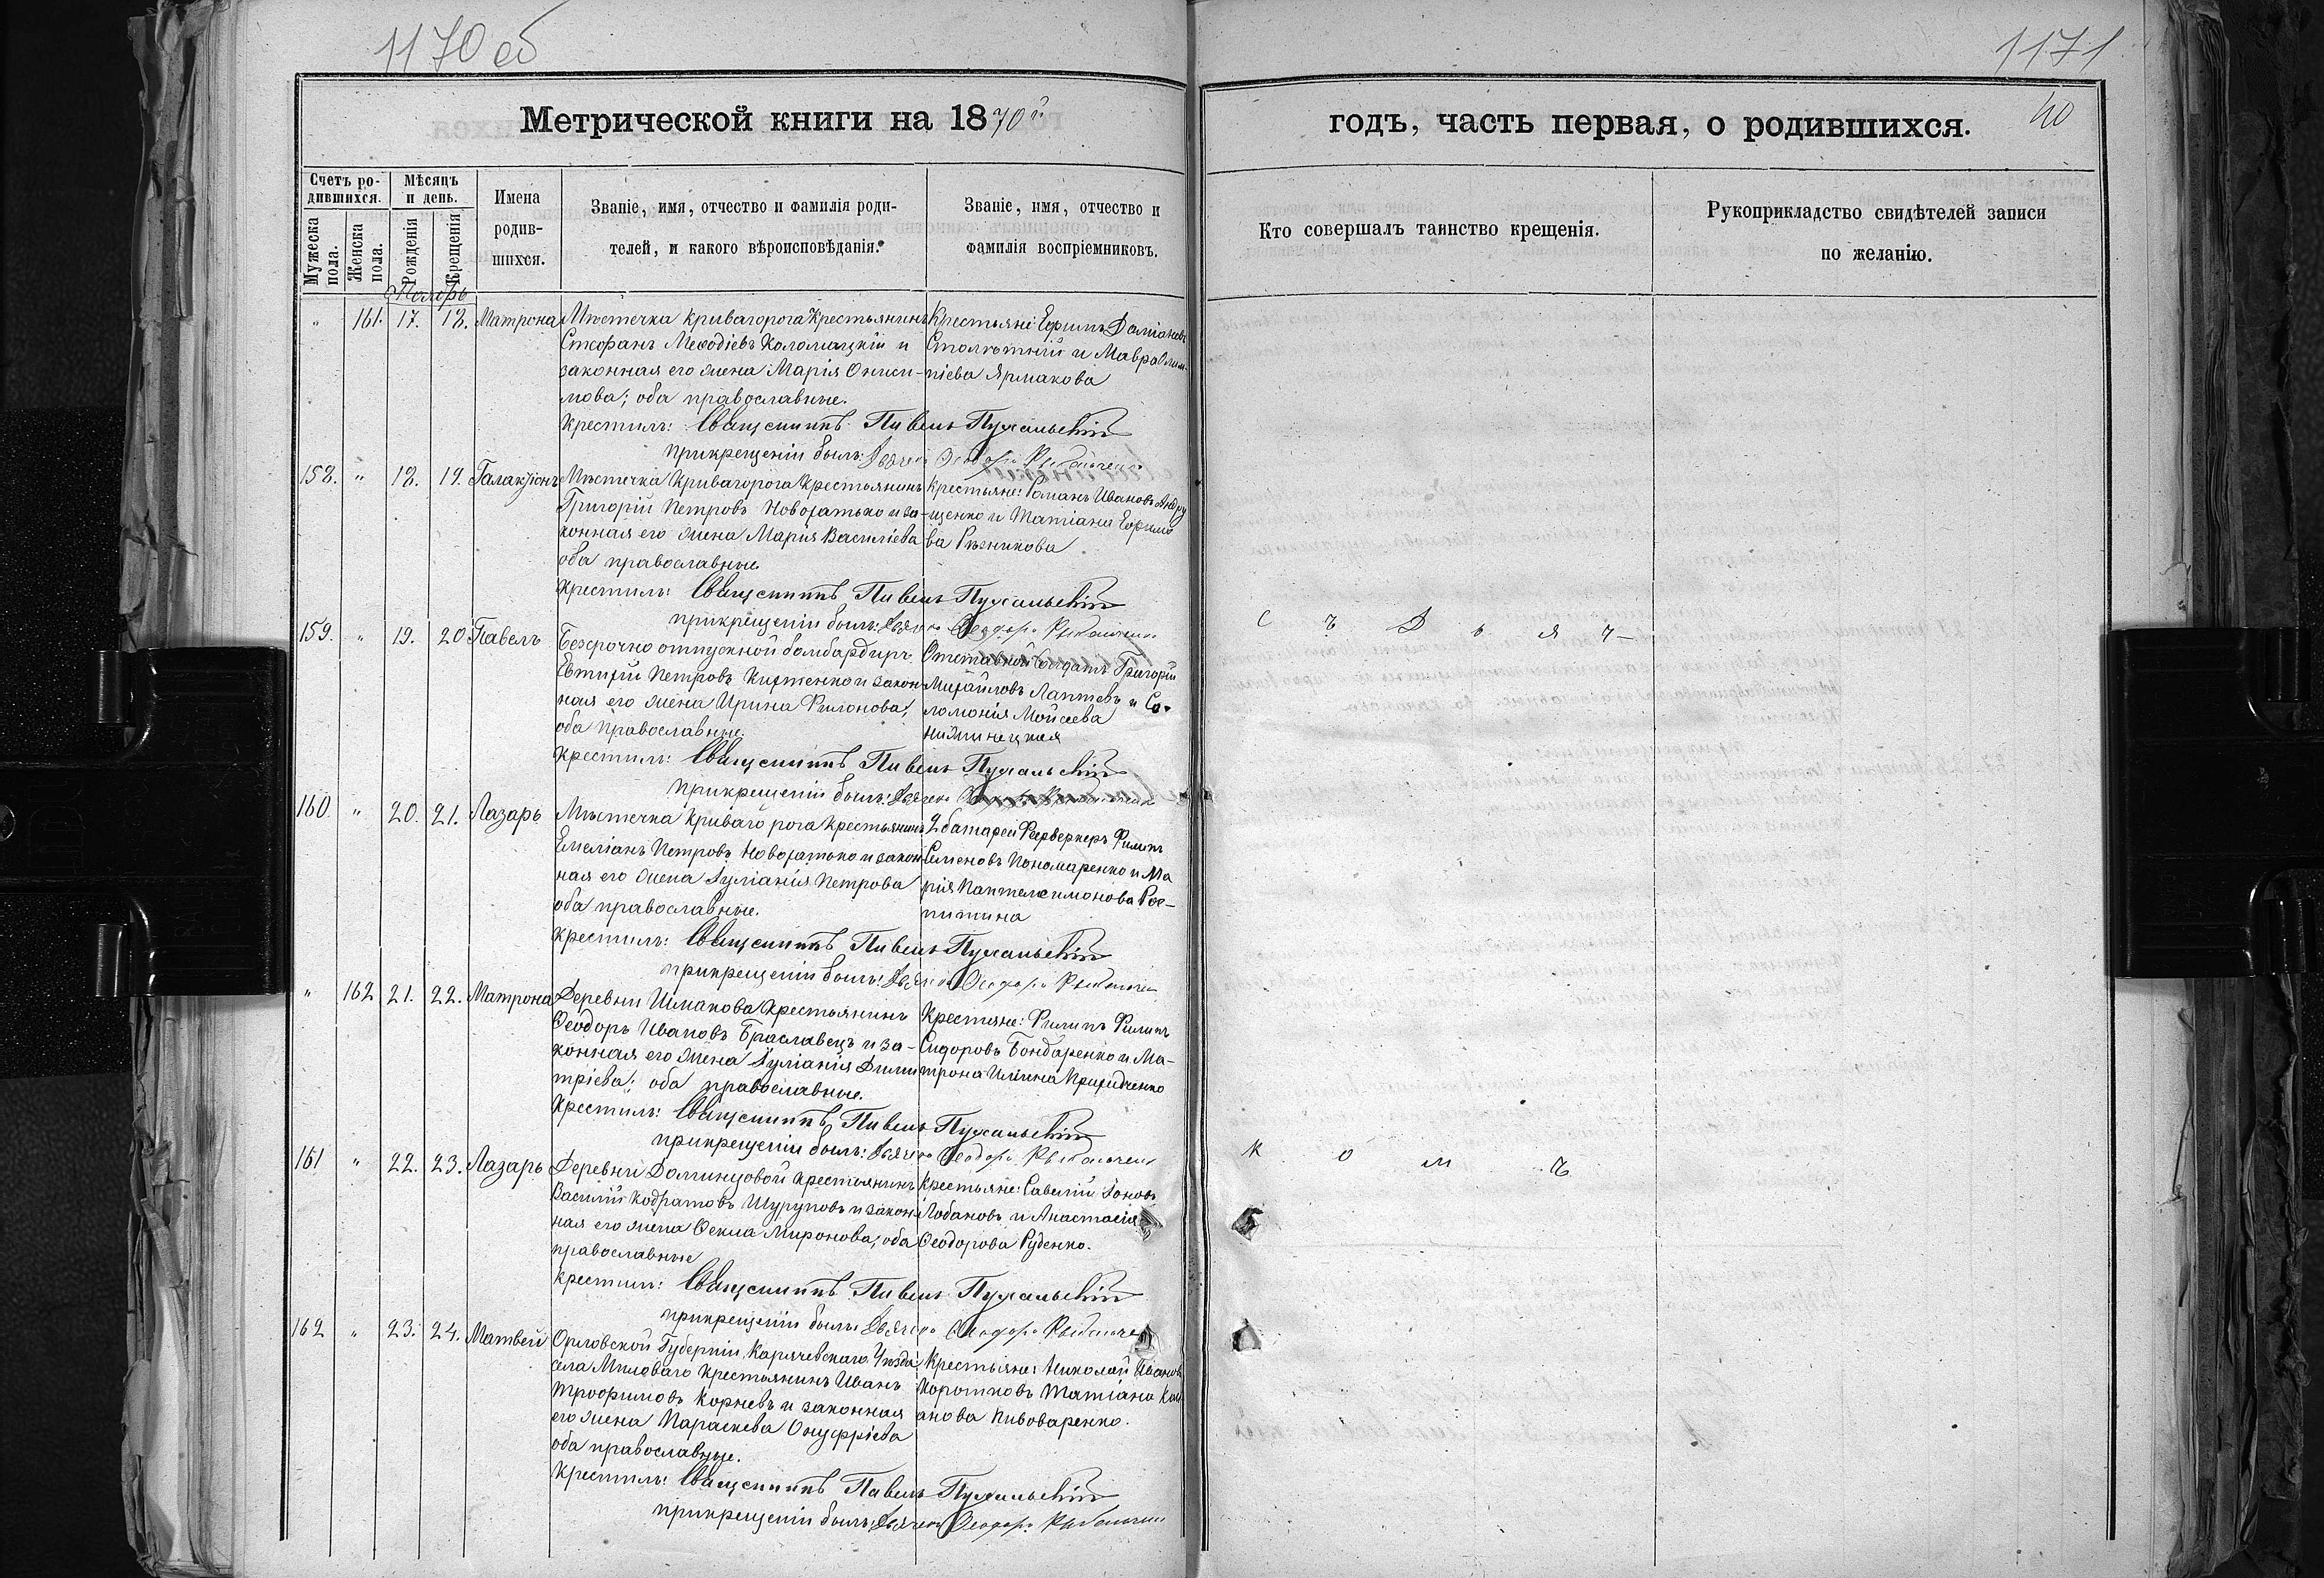 1170 об
1171
40
Метрической книги на 1870й
годъ, часть первая, о родившихся.
Счетъ родившихся.
Мѣсяцъ и день.
Мужеска пола.
Женска пола.
Рожденія
Крещенія
Имена родившихся.
Званіе, имя, отчество и фамилія родителей, и какого вѣроисповѣданія.
Званіе, имя, отчество и фамилія воспріемниковъ.
Кто совершалъ таинство крещенія.
Рукоприкладство свидѣтелей записи по желанію.
Ноябрь
" 161. 17. 18. Матрона
Мѣстечка Кривагорога Крестьянинъ
Стефанъ Меѳодіевъ Коломацкій и
законная его жена Марія Ониси-
мова; оба православные.
Крестьяне: Ефимъ Даміановъ
Столѣтній и Мавра Олим-
піева Ярмакова
Крестилъ: Священникъ Павелъ Пухальскій
При крещеніи былъ: Дьячекъ Ѳеодоръ Рыбальченко
158. " 18. 19. Галактіонъ
Мѣстечка Кривагорога Крестьянинъ
Григорій Петровъ Новохатько и за-
конная его жена Марія Василіева
оба православные
Крестьяне: Романъ Ивановъ Андру
щенко и Татіана Ефимо
ва Рѣзникова
Крестилъ: Священникъ Павелъ Пухальскій
При крещеніи былъ: Дьячекъ Ѳеодоръ Рыбальченко
159. " 19. 20 Павелъ
Безсрочно отпускной бомбардиръ
Евтихій Петровъ Кихтенко и закон-
ная его жена Ирина Филонова;
оба православные.
Отставной Солдатъ Григорій
Михайловъ Лаптевъ и Со-
ломонія Мойсеева
Крестилъ: Священникъ Павелъ Пухальскій
При крещеніи былъ: Дьячекъ Ѳеодоръ Рыбальченко
160. " 20. 21. Лазарь
Мѣстечка Криваго рога Крестьянинъ
Емеліанъ Петровъ Новохатько и закон-
ная его жена Іуліанія Петрова
оба православные.
2 батареи Фейерверкеръ Филипъ
Семеновъ Пономаренко и Ма
рія Пантелеимонова Рос-
питина
Крестилъ: Священникъ Павелъ Пухальскій
При крещеніи былъ: Дьячекъ Ѳеодоръ Рыбальченко
" 162 21. 22. Матрона
Деревни Шмакова Крестьянинъ
Ѳеодоръ Ивановъ Браславецъ и за-
конная его жена Іуліанія Дими
тріева; оба православные.
Крестяне: Филипъ Филипъ
Сидоровъ Бондаренко и Ма-
трона Иліина
Крестилъ: Священникъ Павелъ Пухальскій
При крещеніи былъ: Дьячекъ Ѳеодоръ Рыбальченко
161 " 22. 23. Лазарь
Деревни Доминцовой Крестьянинъ
Василій Кодратовъ Шуруповъ и закон-
ная его жена Ѳекла Миронова; оба
православные
Крестьяне: Савелій Іоновъ
Лобановъ и Анастасія
Ѳеодорова Руденко.
Крестилъ: Священникъ Павелъ Пухальскій
При крещеніи былъ: Дьячекъ Ѳеодоръ Рыбальченко
162 " 23. 24. Матвей
Орловской Губерніи Карачевскаго Уѣзда
села Милеваго Крестьянинъ Иванъ
Трофимовъ Корневъ и законная
его жена Параскева Онуфріева
оба православные.
Крестьяне: Николай Ивановъ
Коротковъ Татіана
анова Пивоваренко.
Крестилъ: Священникъ Павелъ Пухальскій
При крещеніи былъ: Дьячекъ Ѳеодоръ Рыбальченко
С ъ Д ь я ч-
к о м ъ